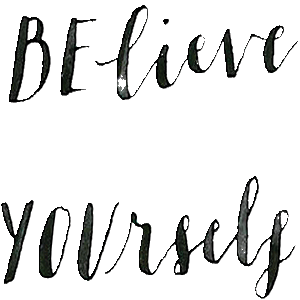 BElieve
YOUrself